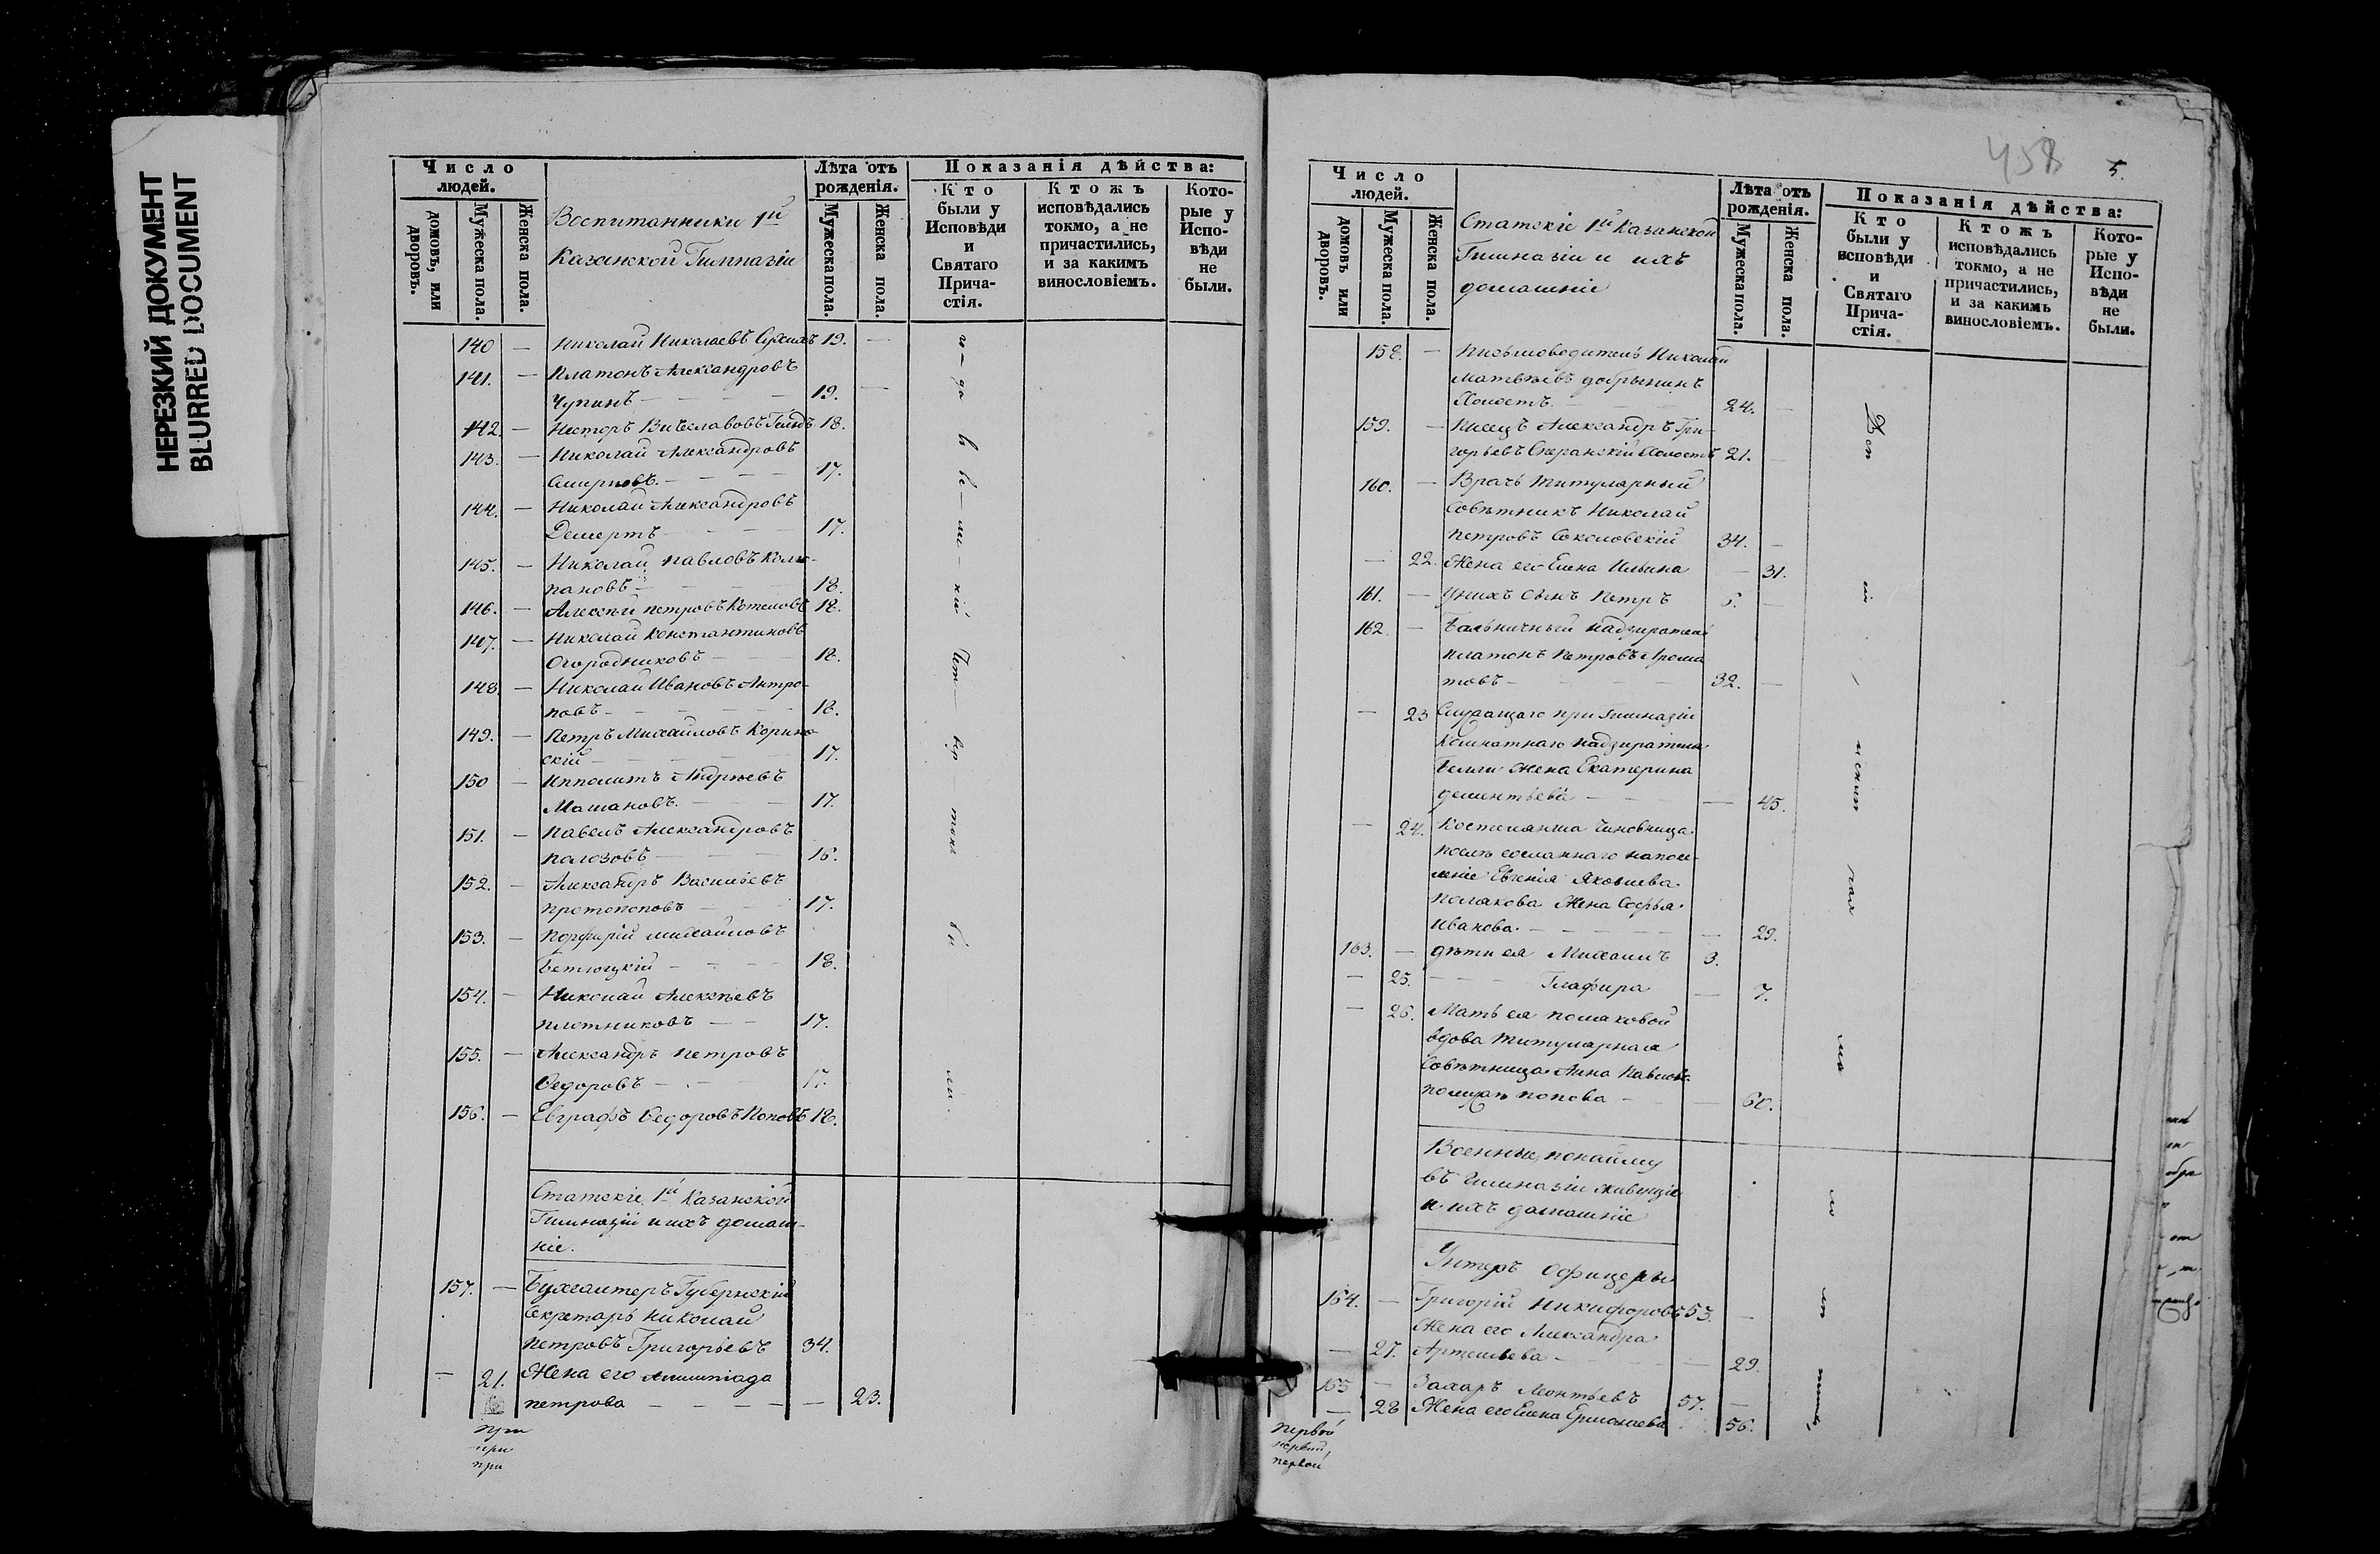 НЕРЕЗКИЙ ДОКУМЕНТ
BLURRED DOCUMENT
Число людей.
домовъ, или дворовъ.
Мужеска пола.
Женска пола.
Воспитанники 1й
Казанской Гимназіи
Лѣта отъ рожденія.
Мужеска пола.
Женска пола.
Показанія дѣйства:
Кто были у Исповѣди и Святаго Прича-стія.
Ктожъ исповѣдались токмо, а не причастились, и за какимъ винословіемъ.
Кото-рые у Испо-вѣди не были.
140 — Николай Николаевъ 19. —
141. — Платонъ Александровъ
Чупинъ — 19. —
142. — Несторъ 18.
143. — Николай Александровъ
Смирновъ. — 17.
144. — Николай Александровъ
Демертъ — 17.
145. — Николай Павловъ Колю-
пановъ — 18.
146. — Алексѣй Петровъ Котеловъ 18.
147. — Николай Константиновъ
Огородниковъ — 18.
148. — Николай Ивановъ Антро-
повъ — 18.
149. — Петръ Михайловъ Корино-
скій — 17.
150 — Ипполитъ Андреевъ
Мошановъ. — 17.
151. — Павелъ Александровъ
Пологовъ — 16.
152. — Александръ Васильевъ
Протопоповъ — 17.
153. — Порфирій Михайловъ
18.
154. — Николай Алексѣевъ
Плотниковъ — 17.
155. — Александръ Петровъ
Ѳедоровъ — 17.
156. — Евграфъ Ѳедоровъ Поповъ 18.
Статскіе 1й Казанской
Гимназіи и ихъ домаш-
ніе.
157. — Бухгалтеръ Губернскій
Секретарь Николай
Петровъ Григорьевъ 34.
— 21. Жена его Олимпіада
Петрова — 23.
при
при
при
458
5.
Число людей.
домовъ или дворовъ.
Мужеска пола.
Женска пола.
Статскіе 1й Казанской
Гимназіи и ихъ
домашніе
Лѣта отъ рожденія.
Мужеска пола.
Женска пола.
Показанія дѣйства:
Кто были у исповѣди и Святаго Прича-стія.
Ктожъ исповѣдались токмо, а не причастились, и за какимъ винословіемъ.
Кото-рые у Испо-вѣди не были.
158. — Письмоводитель Николай
Матвѣевъ Добрынинъ
Холостъ. 24. —
159. — Писецъ Александръ Гри-
горьевъ Сперанскій Холостъ 21. —
160. — Врачъ Титулярный
Совѣтникъ Николай
Петровъ Соколовскій 34. —
— 22. Жена его Елена Ильина — 31.
161. — У нихъ сынъ Петръ 6. —
162. — Больничный надзиратель
Платонъ Петровъ Арома-
товъ — 32. —
— 23 Служащаго при Гимназіи
Комнатнаго надзирателя
жена Екатерина
Дементьева — 45.
— 24. Костелянша Чиновница
послѣ сосланнаго на посе-
леніе Евгенія Яковлева
Полякова Жена Софья
Иванова. — 29.
163. — Дѣти ея Михаилъ 3.
— 25. — Глафира — 7.
— 26. Мать ея Поляковой
вдова Титулярная
Совѣтница Анна Павлова
Попова — 60.
Военные, по найму
въ Гимназіи живущіе
и ихъ домашніе
Унтеръ Офицеры
164. — Григорій Никифоровъ 53. —
Жена его Александра
— 27. Артемьева — 29.
165 — Захаръ Леонтьевъ 57. —
— 28 Жена его Елена Ермолаева 56.
первой
первой,
первой